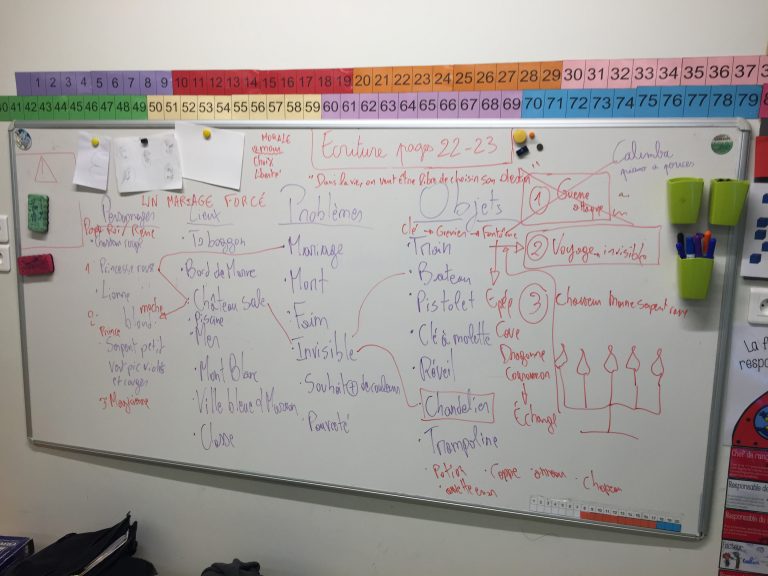 1 2 3 4 5 6 7 8 9 10 11 12 13 14 15 16 17 18 19 20 21 22 23 24 25 26 27 28 29 30 31 32 33 34 35 36 37
40 41 42 43 44 45 46 47 48 49 50 51 52 53 54 55 56 57 58 59 60 61 62 63 64 65 66 67 68 69 70 71 72 73 74 75 76 77 78 79
MORALE
Choix
Liberté
Ecriture pages 22-23
Calimba
pouces
"Dans la vie on veut être libre de choisir son destin"
UN MARIAGE FORCÉ
Personnages
Papa Roi / Reine
1 Princesse rose
Lionne
2
blanc
Prince
Serpent petit
vert pic violet
et rouges
3 Magicienne
Lieux
Toboggan
Bord de Marne
Château sale
Piscine
Mer
Mont Blanc
Ville bleue
Classe
Problèmes
Mariage
Mort
Faim
Invisible
Souhait + de couleurs
Pauvreté
Objets
Clé → Grenier → Fantôme
Train
Bateau
Pistolet
Clé à molette
Réveil
Chandelier
Trampoline
Potion
Cappe
anneau
chapeau
Epée
Cave
Dragonne
Compassion
Échange
1 Guerre
attaque
2 Voyage invisible
3 Chanson
La f
respon
Chef de rang
Responsable de
Responsable du
Facteur